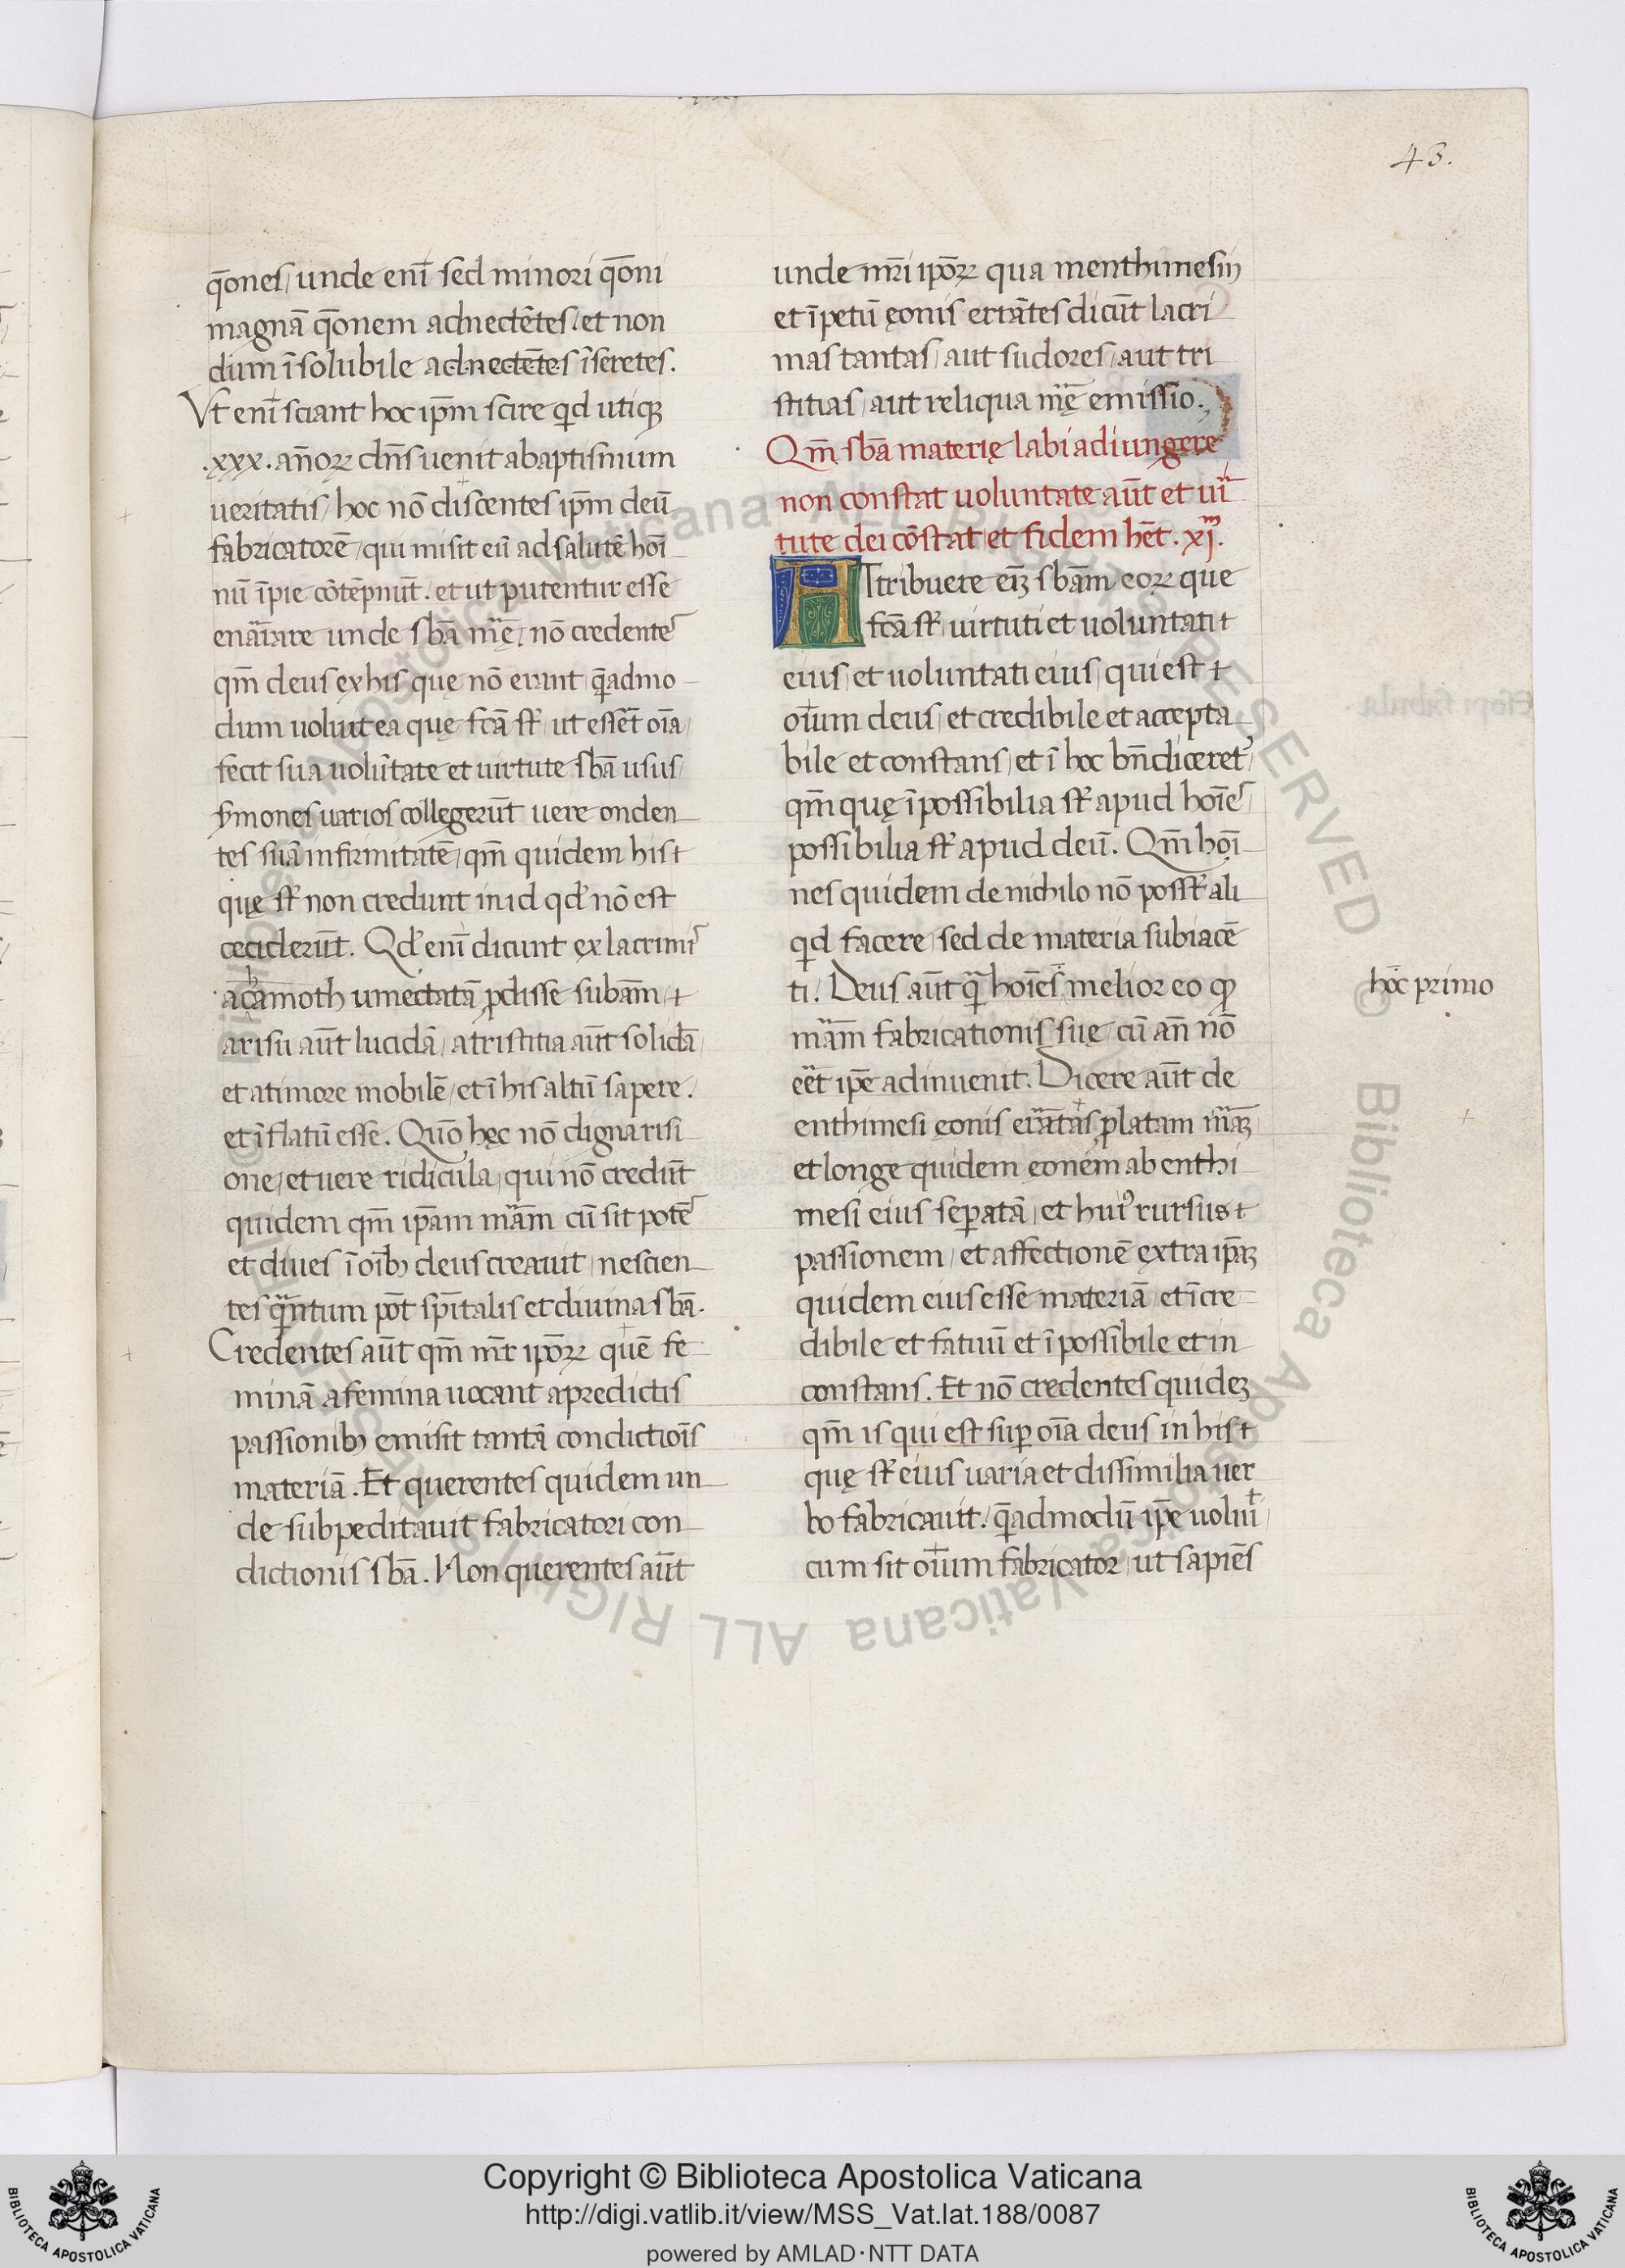 43.
q̄ones, unde eni̅ sed minori q̄oni
magnā q̄onem adnectētes, et non
dum īsolubile adnectētes īseretes.
Vt eni̅ sciant hoc ip̄m scire qd utiqꝫ
.xxx. an̄oꝝ dn̄s uenit ad baptismum
ueritatis, hoc nō discentes ip̄m deū
fabricatorē, qui misit eū ad salutē hoī
nū īpie cōtēpnūt. et ut putentur esse
enarrare unde sb̄a mr̄ę, nō credentes
qm̄ deus ex his que nō erant q̄admo
dum uoluit ea quę fc̄a st̄, ut essēt oīa
fecit sua uolūtate et uirtute sb̄a usus
ẜmones uarios collegerūt uere onden
tes suā infirmitatē, qm̄ quidem his
quę st̄ non credunt in id qd̄ nō est
ceciderūt. Qd̄ eni̅ dicunt ex lacrimis
achamoth umectatā ꝓdisse subām,
a risu aūt lucidā, a tristitia aūt solidā,
et a timore mobilē, et ī his altū sapere.
et īflatū esse. Quō hęc nō digna risi
one, et uere ridicula, qui nō credūt
quidem qm̄ ip̄am mām cū sit potēs
et diues ī oīb; deus creauit, nescien
tes quāntum pōt spīitalis et diuina sb̄a.
Credentes aūt qm̄ mr̄ ipōꝝ quē fe
minā a femina uocant a predictis
passionib; emisit tantā condictiōis
materiā. Et querentes quidem un
de subpeditauit fabricatori con
dictionis sb̄a. Non querentes aūt
unde mr̄i ipōꝝ quam enthimesin
et īpetū ęonis errātes dicūt lacri
mas tantas, aut sudores, aut tri
stitias, aut reliqua mr̄ę emissio.
Qm̄ sb̄a materię labi adiungere
non constat uoluntate aūt et uir
tute dei cōstat et fidem hēt. xj.
Attribuere eīꝫ sbām eoꝝ que
fc̄a st̄, uirtuti et uoluntati
eius, et uoluntati eius, qui est
oīum deus, et credibile et accepta
bile et constans, et ī hoc bn̄ diceret᷑,
qm̄ quę īpossibilia st̄ apud hoīes,
possibilia st̄ apud deū. Qm̄ hoī
nes quidem de nichilo nō posst̄ ali
qd facere, sed de materia subiacē
ti. Deus aūt quā hoīes melior eo qꝫ
mām fabricationis suę, cū an̄ nō
eēt ip̄e adinuenit. Dicere aūt de
enthimesi ęonis errātis ꝓlatam mr̄aꝫ
et longe quidem eonem ab enthi
mesi eius seꝑatā, et huiꝰ rursus
passionem, et affectionē extra ip̄aꝫ
quidem eius esse materiā, et īcre
dibile et fatuū et īpossibile et in
constans. Et nō credentes quideꝫ
qm̄ is qui est suꝑ oīa deus in his
quę st̄ eius uaria et dissimilia uer
bo fabricauit, q̄admodū ip̄e uoluit
cum sit oīum fabricator, ut sapiēs
hōc primo
Copyright © Biblioteca Apostolica Vaticana
http://digi.vatlib.it/view/MSS_Vat.lat.188/0087
powered by AMLAD·NTT DATA
BIBLIOTECA APOSTOLICA VATICANA
BIBLIOTECA APOSTOLICA VATICANA